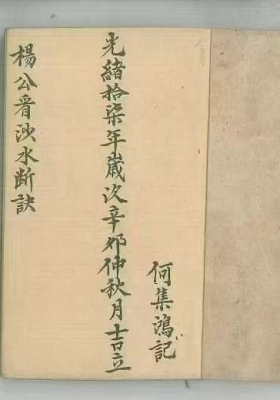 何集鴻記
光緒拾柒年歲次辛卯仲秋月吉立
楊公看沙水斷訣